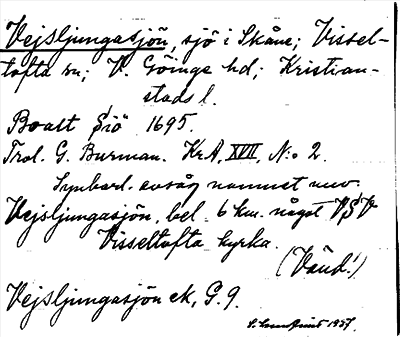 Vejsljungasjön, sjö i Skåne; Vissel-
tofta sn; V. Göinge hd; Kristian-
stads l.
Boalt Siö 1695.
Trol. G. Burman. KrA, XVII, N:o 2.
Synbarl. avsåg namnet nuv.
Vejsljungasjön, bel. 6 km. något VSV
Visseltofta kyrka.
(Vänd!)
Vejsljungasjön ek, G. 9.
1937.